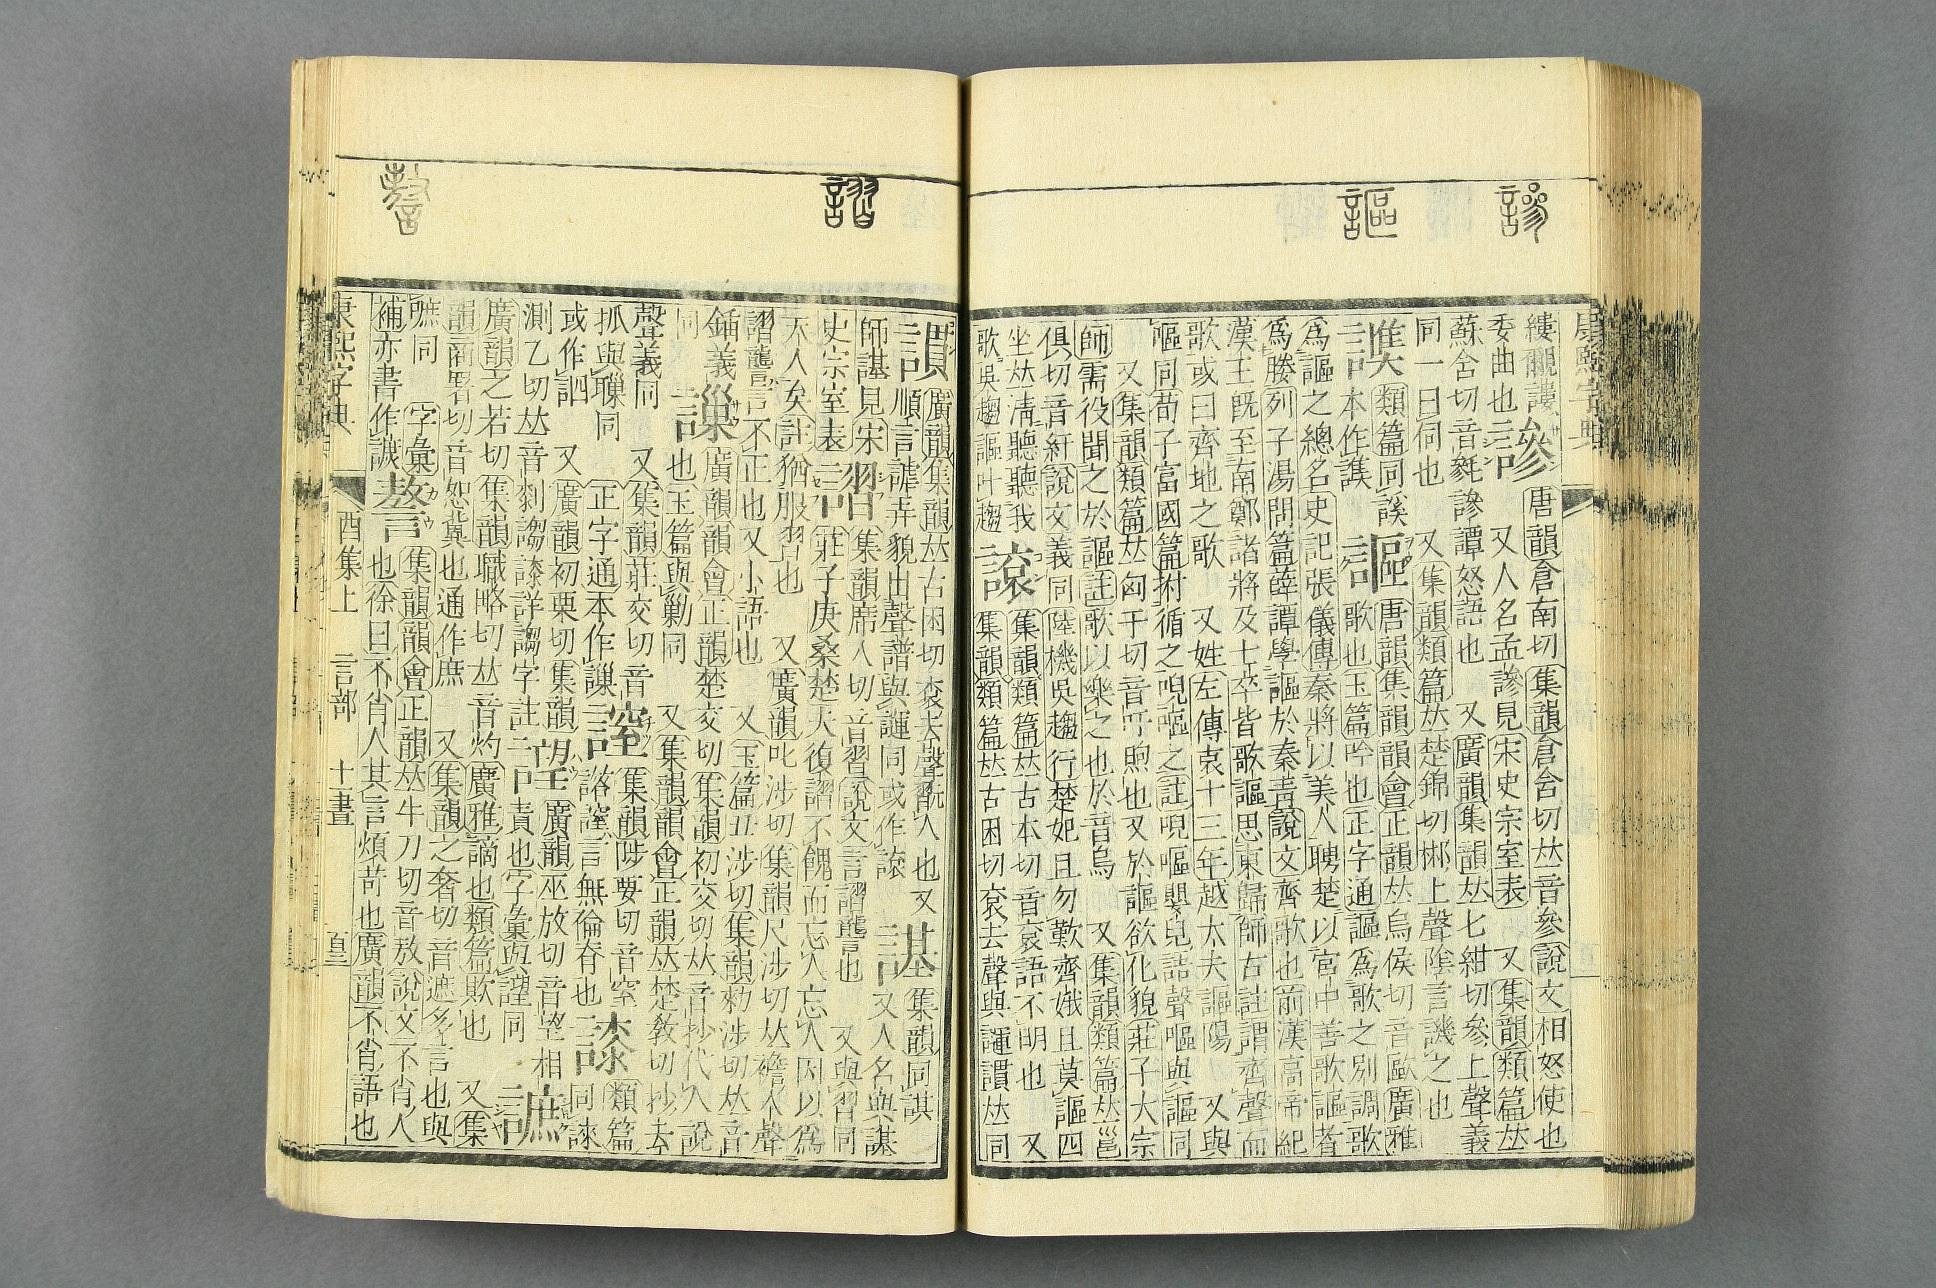 謲
謳
康熙字典
縷覶謱 謲 唐韻倉南切集韻倉含切𠀤音參說文相怒使也
委曲也 又人名孟謲見宋史宗室表 又集韻類篇𠀤
蘇含切音毿謲譚怒語也 又廣韻集韻𠀤七紺切參上聲義
同一曰伺也 又集韻類篇𠀤楚錦切墋上聲陰言譏之也
類篇同謑 謳 唐韻集韻韻會正韻𠀤烏侯切音歐廣雅
本作譕 歌也玉篇吟也正字通謳爲歌之別調歌
爲謳之總名史記張儀傳秦將以美人聘楚以宮中善歌謳者
爲媵列子湯問篇薛譚學謳於秦靑說文齊歌也前漢高帝紀
漢王旣至南鄭諸將及士卒皆歌謳思東歸師古註謂齊聲而
歌或曰齊地之歌 又姓左傳哀十三年越大夫謳陽 又與
嘔同荀子富國篇拊循之唲嘔之註唲嘔嬰兒語聲嘔與謳同
又集韻類篇𠀤匈于切音吁煦也又於謳欲化貌莊子大宗
師需役聞之於謳註歌以樂之也於音烏 又集韻類篇𠀤邕
俱切音紆說文義同陸機吳趨行楚妃且勿歎齊娥且莫謳四
坐𠀤淸聽聽我 集韻類篇𠀤古本切音袞語不明也 又
歌吳趨謳叶趨 集韻類篇𠀤古困切袞去聲與諢謂𠀤同
謵
謷
廣韻集韻𠀤古困切袞去聲 人也又 集韻同諆
順言謔弄貌出聲譜與諢同或作 又人名與諆
師諶見宋 謵 集韻席入切音習說文言謵讋也 又與習同
史宗室表 莊子庚桑楚夫復謵不餽而忘人忘人因以爲
天人矣註猶服習也 又廣韻叱涉切集韻尺涉切𠀤襜入聲
謵讋言不正也又小語也 又玉篇丑涉切集韻勑涉切𠀤音
鍤義 謿 廣韻韻會正韻楚交切集韻初交切𠀤音抄代人說
同 也玉篇與勦同 又集韻韻會正韻𠀤楚敎切抄去
聲義同 又集韻莊交切音 集韻陟要切音窒 類篇
抓與嘲同 正字通本作謿 謘言無倫脊也 同諫
或作 又廣韻初栗切集韻 廣韻巫放切音望相
測乙切𠀤音刹謅 詳謅字註 責也字彙與謹同
廣韻之若切集韻職略切𠀤音灼廣雅謫也類篇欺也 又集
韻商署切音恕冀也通作庶 又集韻之奢切音遮多言也與
嗻同 字彙 謷 集韻韻會正韻𠀤牛刀切音敖說文不肖人
補亦書作 也徐曰不肖人其言煩苛也廣韻不肖語也
康熙字典 酉集上 言部 十一畫